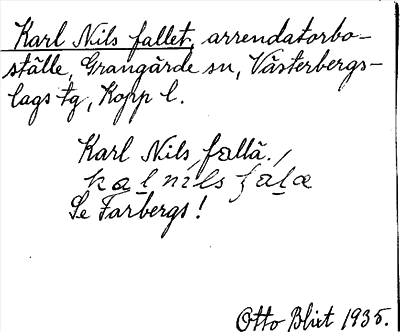 Karl Nils fallet, arrendatorbo-
ställe, Grangärde sn, Västerbergs-
lags tg, Kopp l.
Karl Nils fallä.
Se Farbergs!
Otto Blixt 1935.